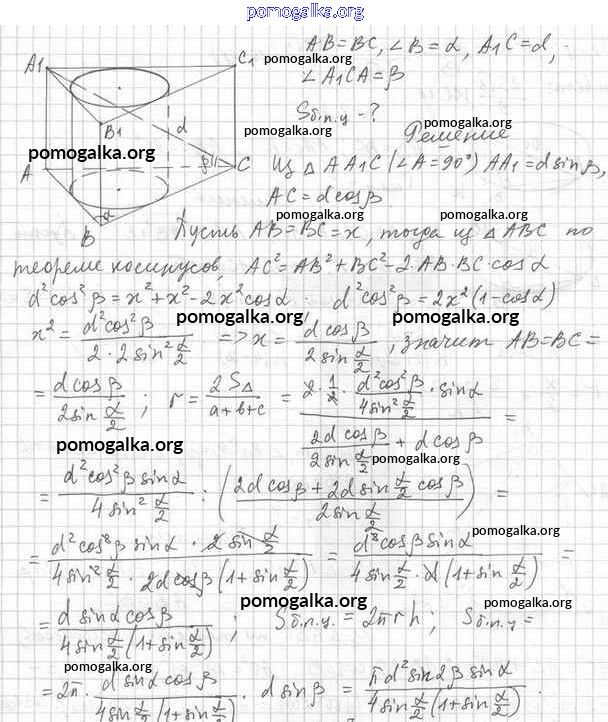 pomogalka.org
A₁ C₁ AB=BC, ∠B=α, A₁C=d,
pomogalka.org
∠A₁CA=β
B₁ d Sб.п.ц - ?
pomogalka.org pomogalka.org
Решение
pomogalka.org
A β C Из △ AA₁C (∠A=90°) AA₁=d sinβ,
pomogalka.org
α AC=d cosβ
pomogalka.org pomogalka.org
B Пусть AB=BC=x, тогда из △ABC по
теореме косинусов, AC²=AB²+BC²-2·AB·BC·cosα
d²cos²β=x²+x²-2x²cosα. d²cos²β=2x²(1-cosα)
pomogalka.org pomogalka.org
x² = d²cos²β / (2·2sin² α/2) => x = d cosβ / (2sin α/2), значит AB=BC=
= d cosβ / (2sin α/2); r = 2S△ / (a+b+c) = (2·1/2·d²cos²β / (4sin² α/2)·sinα) / (2d cosβ / (2sin α/2) + d cosβ) =
pomogalka.org pomogalka.org
= d²cos²β sinα / (4sin² α/2) : ((2d cosβ + 2d sin α/2 cosβ) / (2sin α/2)) =
pomogalka.org
= d²cos²β sinα · 2sin α/2 / (4sin² α/2 · 2d cosβ (1+sin α/2)) = d²cosβ sinα / (4sin α/2 · d (1+sin α/2)) =
pomogalka.org pomogalka.org
= d sinα cosβ / (4sin α/2 (1+sin α/2)); Sб.п.ц. = 2πrh; Sб.п.ц =
pomogalka.org pomogalka.org
= 2π · d sinα cosβ / (4sin α/2 (1+sin α/2)) · d sinβ = πd²sin2β sinα / (4sin α/2 (1+sin α/2)).